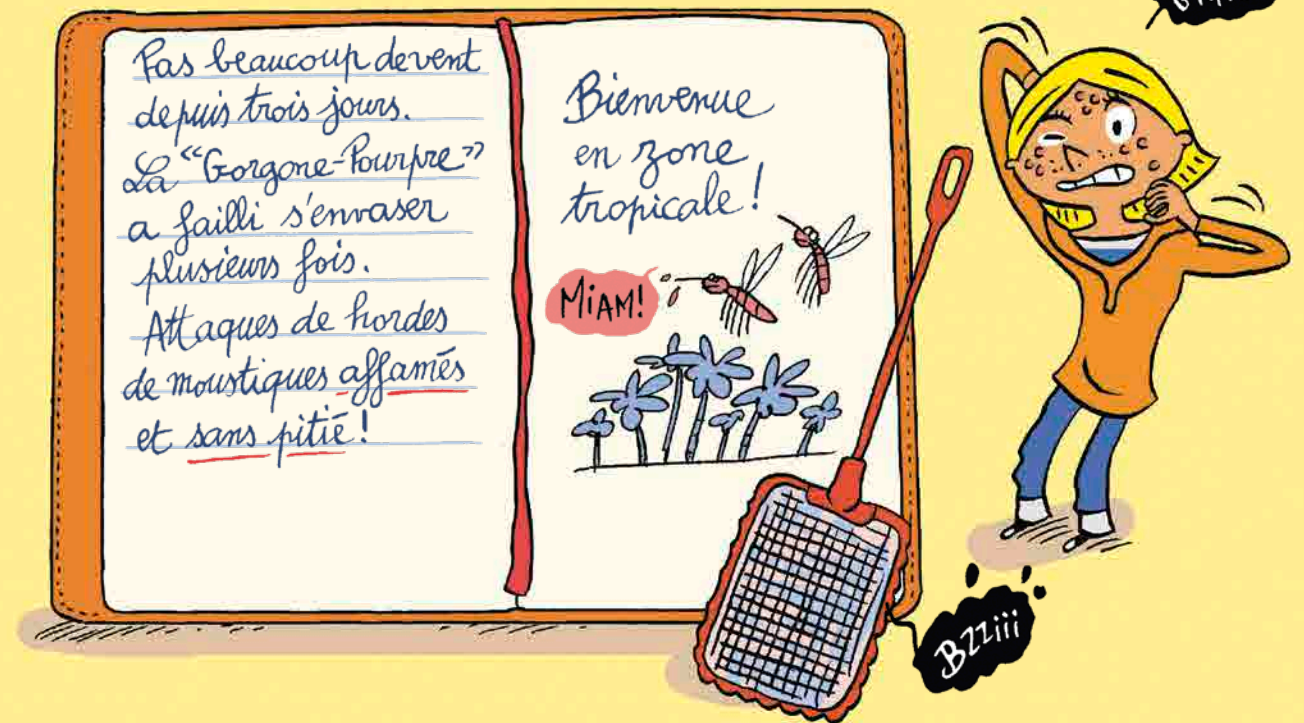 Pas beaucoup de vent
depuis trois jours.
La "Gorgone-Pourpre"
a failli s'envaser
plusieurs fois.
Attaques de hordes
de moustiques affamés
et sans pitié!
Bienvenue
en zone
tropicale!
MiAM!
Bzziii